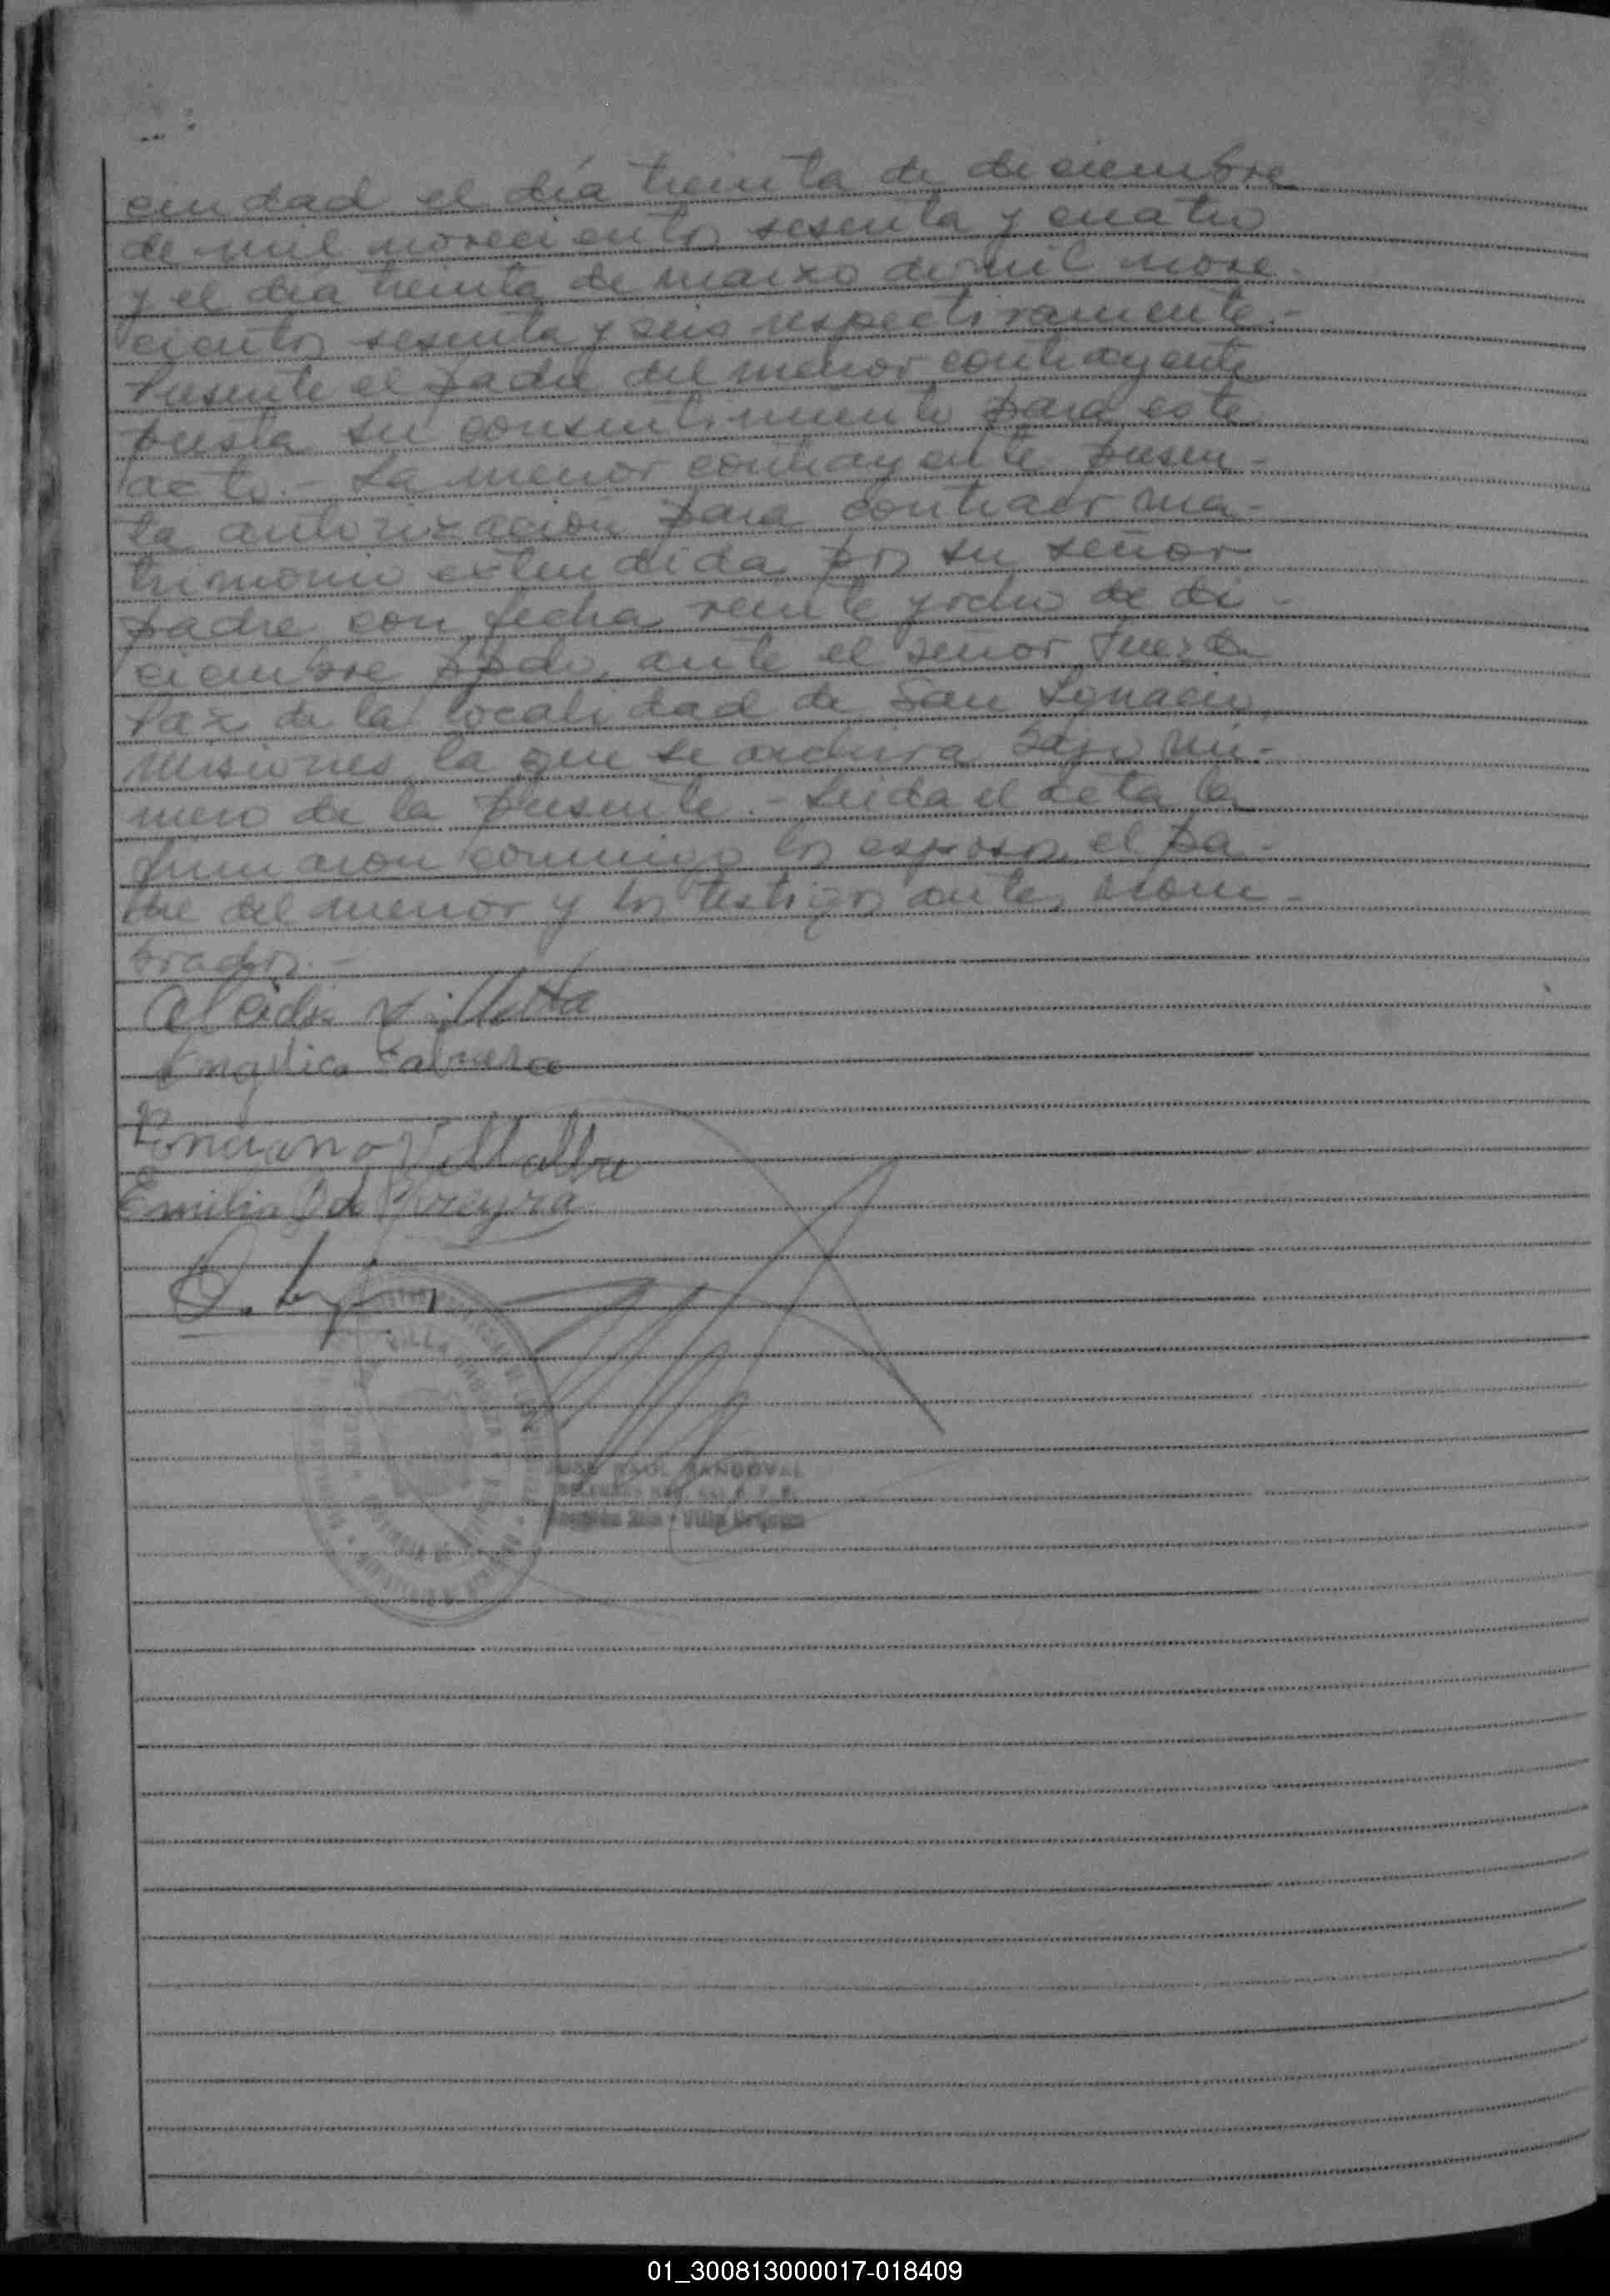 ciudad el día treinta de diciembre
de mil novecientos sesenta y cuatro
y el día treinta de marzo de mil nove-
cientos sesenta y seis respectivamente.-
Presente el padre del menor contrayente
presta su consentimiento para este
acto.- La menor contrayente presen-
ta autorización para contraer ma-
trimonio extendida por su señor
padre con fecha veinte y ocho de di-
ciembre ppdo, ante el señor Juez de
Paz de la localidad de San Ignacio,
Misiones, la que se archiva bajo nú-
mero de la presente.- Leida el acta la
firmaron conmigo los esposos, el pa-
dre del menor y los testigos antes nom-
brados.-
Alcides Villalba
Angelica Cabrera
Ponciano Villalba
Emilia de Pereyra
RAUL SANDOVAL
Villa
01_300813000017-018409